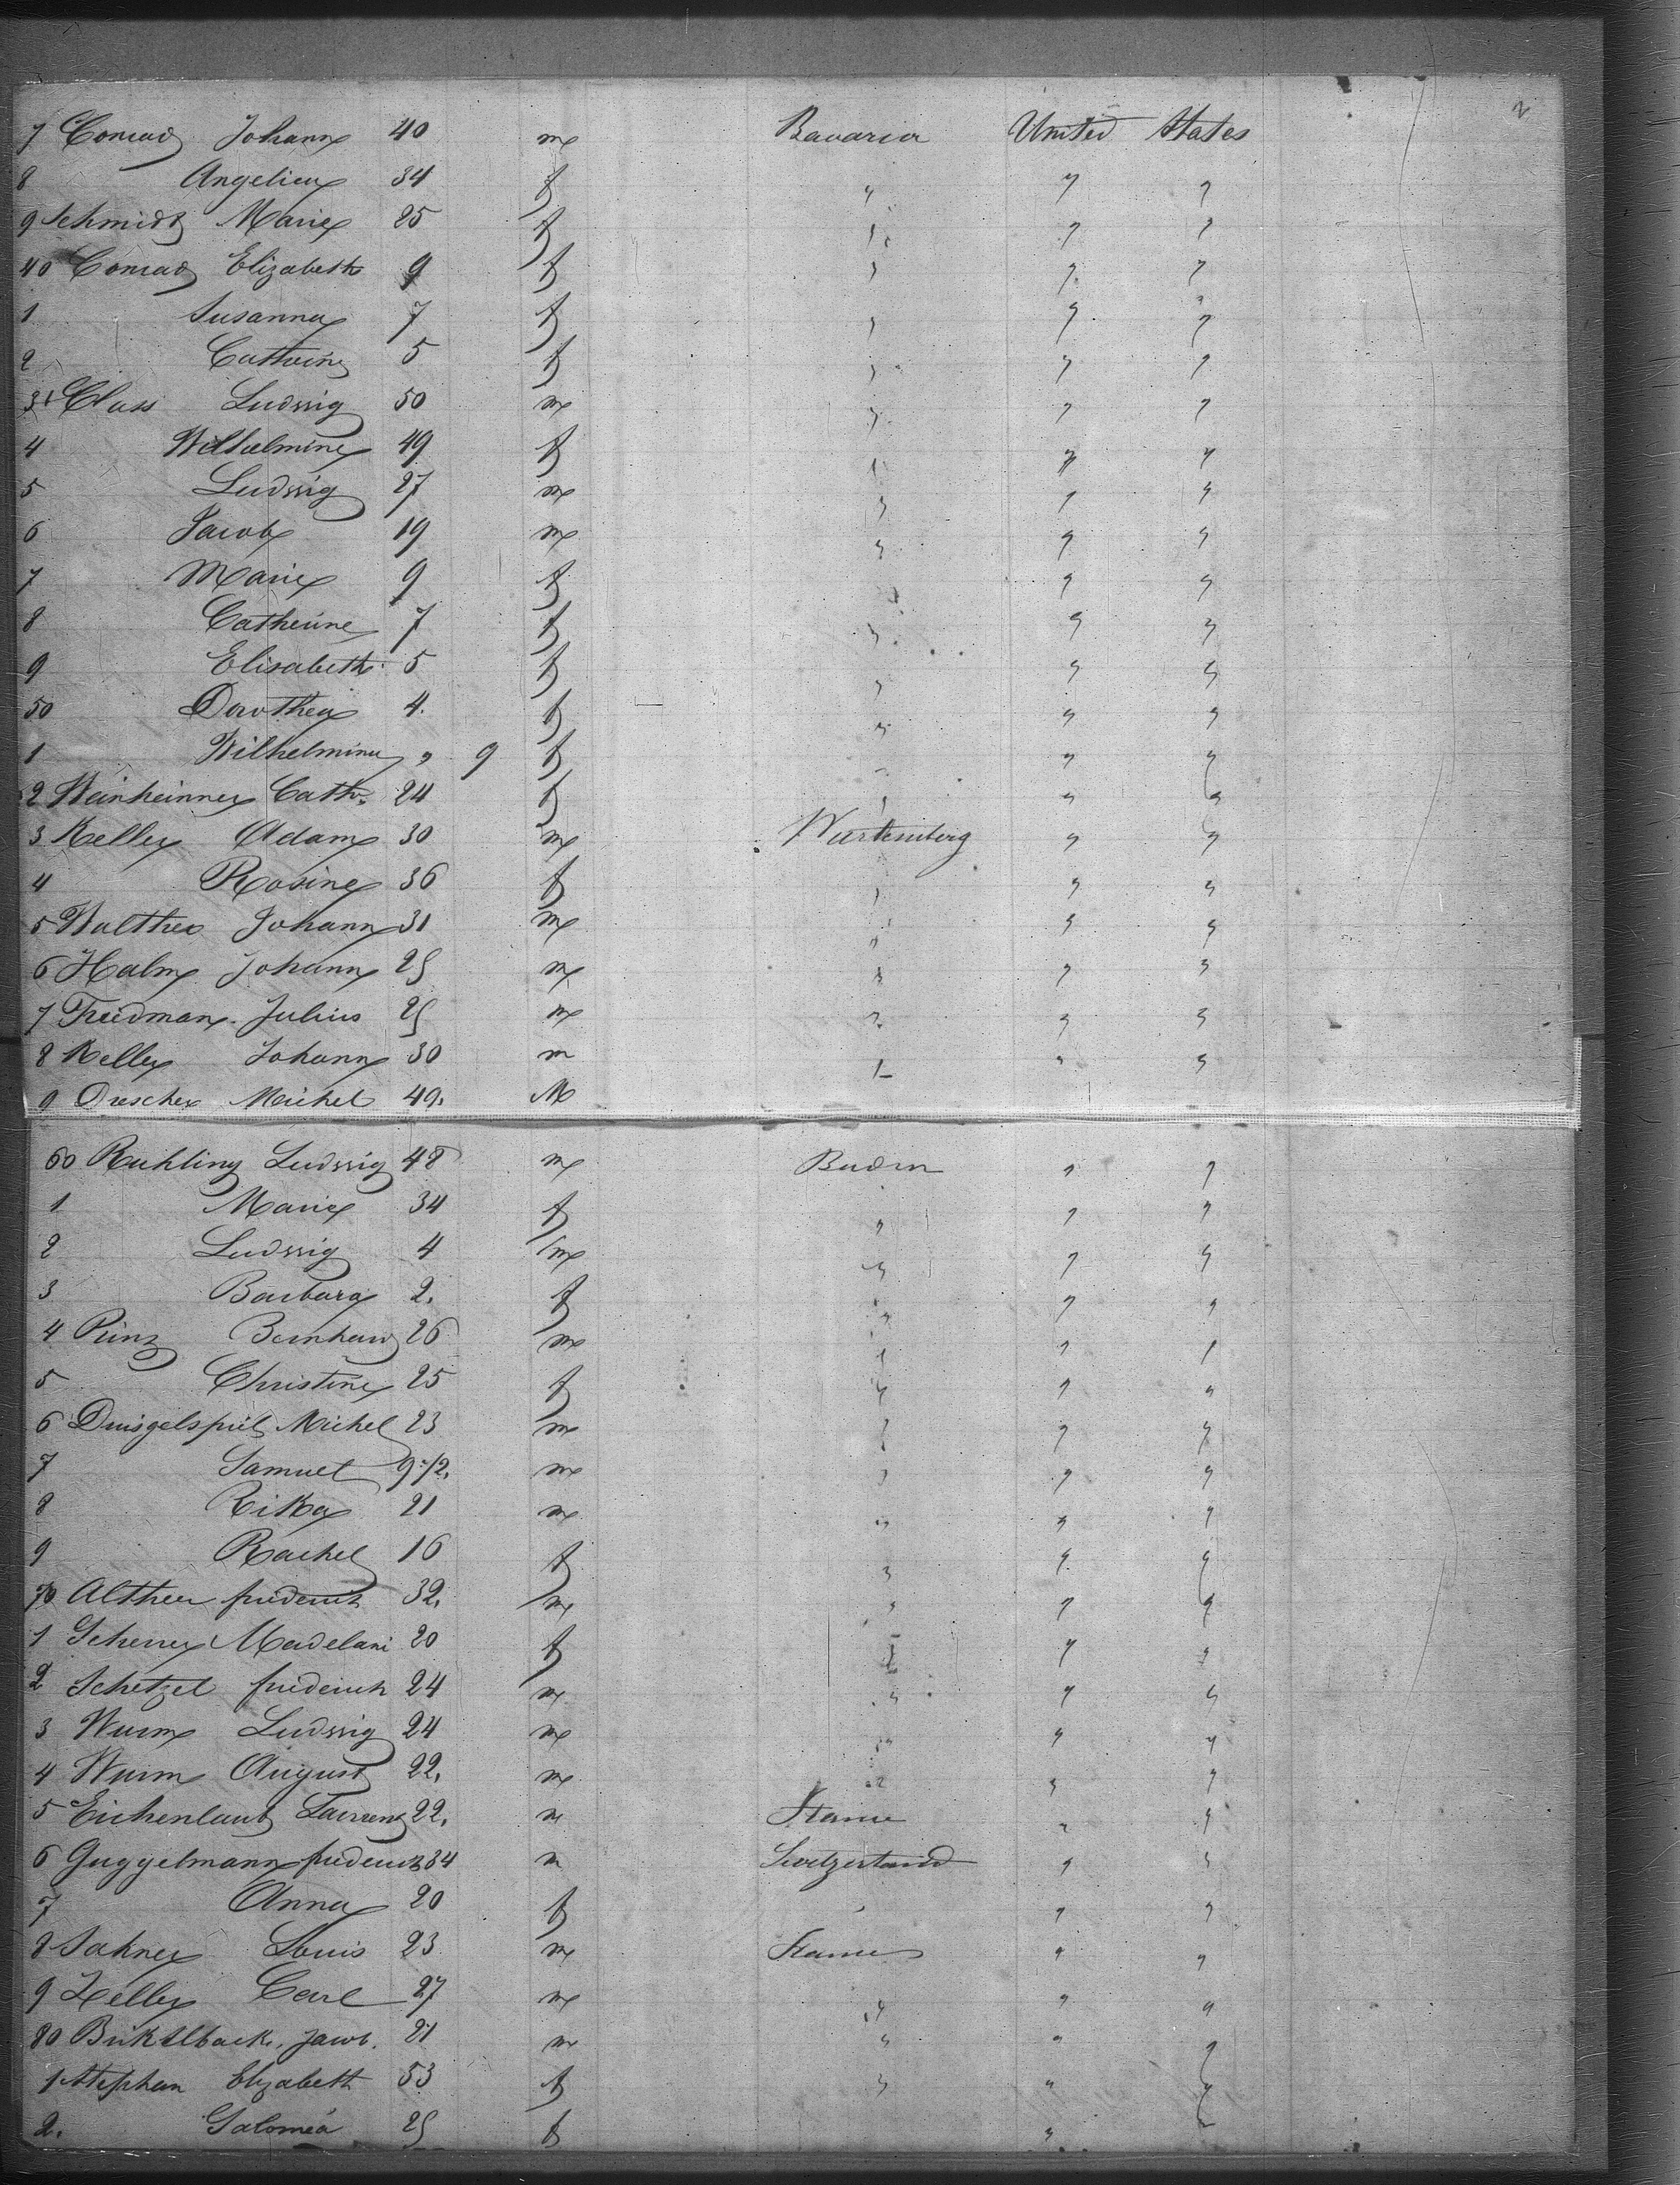 2
7 Conrad Johann 40 m Bavaria United States
8 Angelica 34 f " " "
9 Schmidt Marie 25 f " " "
40 Conrad Elizabeth 9 f " " "
1 Susanna 7 f " " "
2 Cathrine 5 f " " "
3 Class Ludwig 50 m " " "
4 Wilhelmine 49 f " " "
5 Ludwig 27 m " " "
6 Jacob 19 m " " "
7 Marie 9 f " " "
8 Catherine 7 f " " "
9 Elisabeth 5 f " " "
50 Dorothea 4. f " " "
1 Wilhelmina " 9 f " " "
2 Weinheimer Cath. 24 f " " "
3 Keller Adam 30 m Wurtemberg " "
4 Rosine 36 f " " "
5 Walther Johann 31 m " " "
6 Halm Johann 25 m " " "
7 Friedman Julius 25 m " " "
8 Keller Johann 30 m " " "
9 Drescher Michel 49. M
60 Ruhling Ludwig 48 m Baden " "
1 Marie 34 f " " "
2 Ludwig 4 m " " "
3 Barbara 2. f " " "
4 Prinz Bernhard 26 m " " "
5 Christine 25 f " " "
6 Michel 23 m " " "
7 Samuel 9 1/2. m " " "
8 Rika 21 m " " "
9 Rachel 16 f " " "
70 Altheer friderich 32. m " " "
1 Scherrer Madelani 20 f " " "
2 Schetzel friderich 24 m " " "
3 Wurm Ludwig 24 m " " "
4 Wurm August 22. m " " "
5 Eichenlaub Laurenz 22. m France " "
6 Guggelmann friderich 34 m Switzerland " "
7 Anna 20 f " " "
8 Sahner Louis 23 m France " "
9 Keller Carl 27 m " " "
80 Jacob. 21 m " " "
1 Stephan Elizabeth 53 f " " "
2. Saloméa 25 f " "